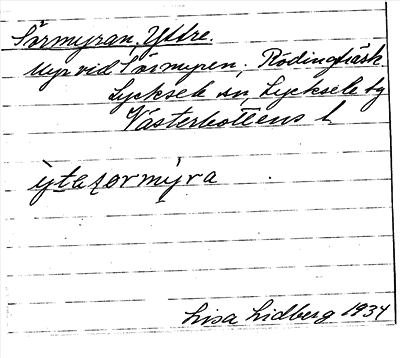 Sörmyran, Yttre.
Myr vid Sörmyren, Rödingträsk
Lycksele sn, Lycksele lg
Västerbottens l.
Lisa Lidberg 1934